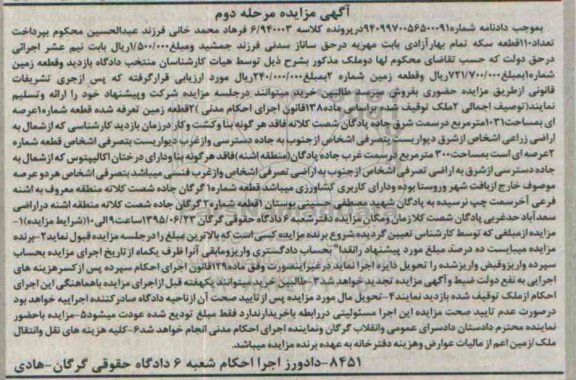 آگهی مزایده مرحله دوم
بموجب دادنامه شماره ۹۴۰۹۹۷۰۰۵۶۵۰۰۰۹۱ درپرونده کلاسه ۶/۹۴۰۰۰۳ فرهاد محمد خانی فرزند عبدالحسین محکوم بپرداخت
تعداد۱۱۰قطعه سکه تمام بهارآزادی بابت مهریه درحق ساناز سدنی فرزند جمشید ومبلغ۱/۵۰۰/۰۰۰ریال بابت نیم عشر اجرائی
درحق دولت که حسب تقاضای محکوم لها دوملک مذکور بشرح ذیل توسط هیات کارشناسان منتخب دادگاه بازدید وقطعه زمین
شماره۱بمبلغ۷۲۱/۷۰۰/۰۰۰ریال وقطعه زمین شماره ۲بمبلغ۲۴۰/۰۰۰/۰۰۰ریال مورد ارزیابی قرارگرفته که پس ازجری تشریفات
قانونی ازطریق مزایده حضوری بفروش میرسد طالبین خرید میتوانند درجلسه مزایده شرکت وپیشنهاد خود را ارائه وتسلیم
نمایند(توصیف اجمالی ۲ملک توقیف شده براساس ماده۱۳۸قانون اجرای احکام مدنی )۲قطعه زمین تعرفه شده قطعه شماره۱عرصه
ای بمساحت۱۰۳۱مترمربع درسمت شرق جاده پادگان شصت کلاته فاقد هر گونه بنا وکشت وکار درزمان بازدید کارشناسی که ازشمال به
اراضی زراعی اشخاص ازشرق دیواریست بتصرفی اشخاص ازجنوب به جاده دسترسی وازغرب دیواریست بتصرفی اشخاص قطعه شماره
۲عرصه ای است بمساحت۳۰۰ مترمربع درسمت غرب جاده پادگان(منطقه اشنه)فاقد هرگونه بنا ودارای درختان اکالیپتوس که ازشمال به
جاده دسترسی ازشرق به اراضی تصرفی اشخاص ازجنوب به اراضی تصرفی اشخاص وازغرب فنسی میباشد بتصرفی اشخاص هردو عرصه
موصوف خارج ازبافت شهر وروستا بوده ودارای کاربری کشاورزی میباشد قطعه شماره۱ گرگان جاده شصت کلاته منطقه معروف به اشنه
فرعی آخرسمت چپ نرسیده به پادگان شهید مصطفی حسینی بوستان ۱قطعه شماره۲ گرگان جاده شصت کلاته منطقه اشنه دراراضی
سعدآباد حدغربی پادگان شصت کلا زمان ومکان مزایده دفترشعبه ۶ دادگاه حقوقی گرگان ۱۳۹۵/۰۶/۲۳ساعت۹الی۱۰(شرایط مزایده)۱-
مزایده ازمبلغی که توسط کارشناس تعیین گردیده شروع برنده مزایده کسی است که بالاترین مبلغ را درجلسه مزایده قبول نماید۲-برنده
مزایده میبایست ده درصد مبلغ مورد پیشنهاد رانقدا" بحساب دادگستری واریزومابقی آنرا ظرف یکماه از تاریخ اجرای مزایده بحساب
سپرده واریزوقبض واریزشده را تحویل دایره اجرا نماید درغیراینصورت وفق ماده۱۲۹قانون اجرای احکام سپرده پس از کسرهزینه های
اجرایی به نفع دولت ضبط وآگهی مزایده تجدید خواهد شد۳-طالبین خرید میتوانند یکهفته قبل ازاجرای مزایده باهماهنگی این اجرای
احکام ازملک توقیف شده بازدید نمایند۴-تحویل مال مورد مزایده پس از تایید صحت آن ازناحیه دادگاه صادرکننده اجراییه خواهد بود
درصورت عدم تایید صحت مزایده این اجرا مسئولیتی دررابطه باخریدارندارد فقط مبلغ تودیع شده عودت میشود۵-مزایده باحضور
نماینده محترم دادستان دادسرای عمومی وانقلاب گرگان ونماینده اجرای احکام مدنی انجام خواهد شد۶-کلیه هزینه های نقل وانتقال
ملک /زمین اعم از مالیات عوارض وهزینه دفترخانه به عهده برنده مزایده میباشد.
۸۴۵۱-دادورز اجرا احکام شعبه ۶ دادگاه حقوقی گرگان-هادی